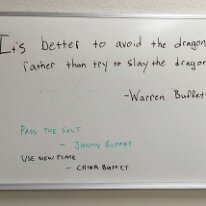 It's better to avoid the dragon
rather than try to slay the dragon
-Warren Buffet
PASS THE SALT
- JIMMY BUFFET
USE NEW PLATE
- CHINA BUFFET